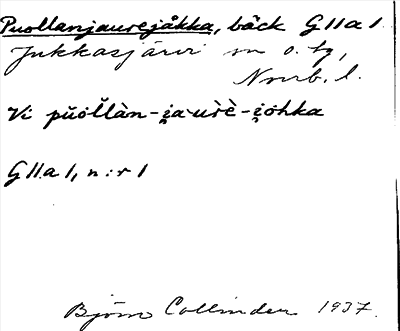 Puollanjaurejåkka, bäck G 11 a 1
Jukkasjärvi sn o. tg,
Norrb. l.
Vi puoĺĺàn-i̯a·urè-i̯ohka
G 11 a 1, n:r 1
Björn Collinder 1937.